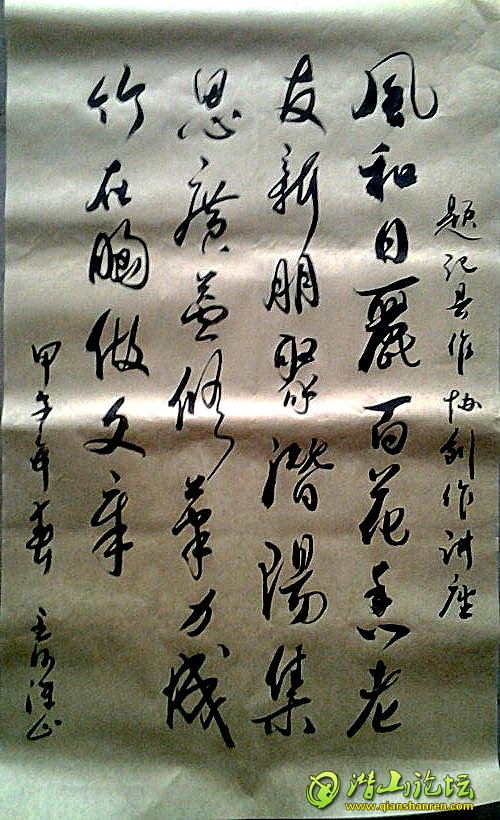 题记县作协创作讲座
風和日麗百花香老
友新朋聚潜陽集
思廣益修筆力成
竹在胸做文章
甲午年春
潜山论坛
www.qianshanren.com